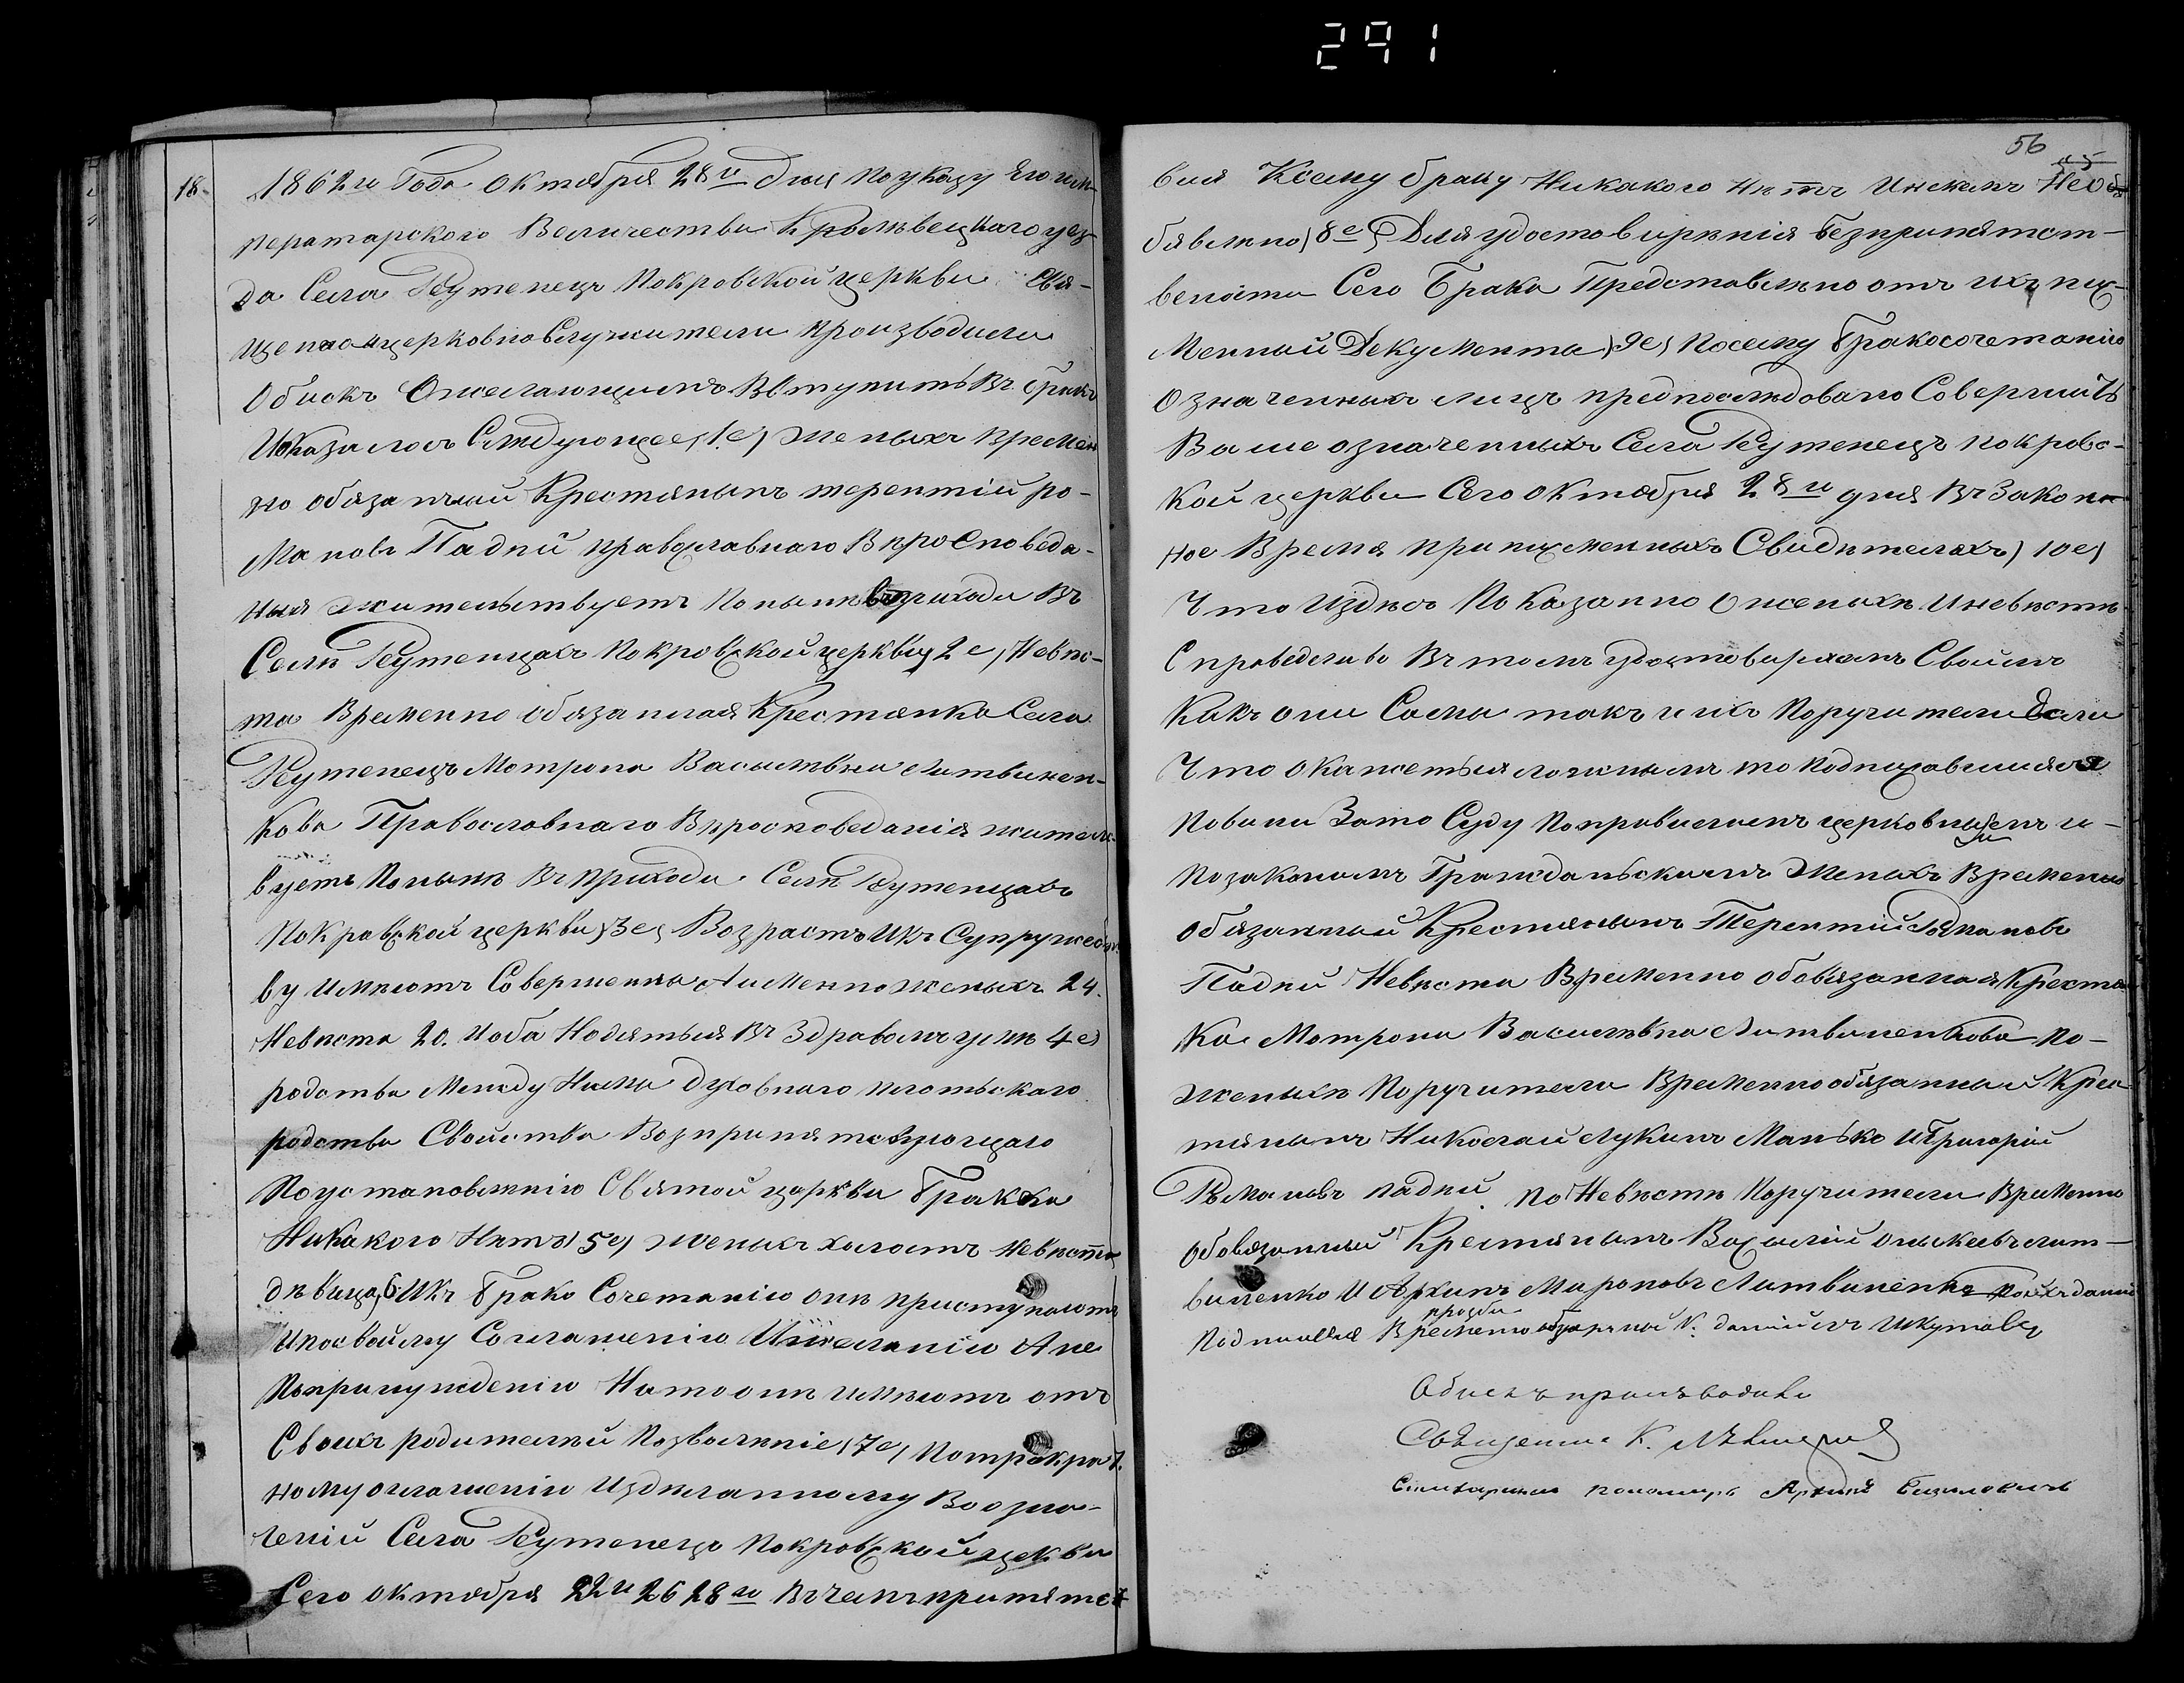 291
56
18.
1862го Года Октября 28го Дня По указу Его им-
ператарского Величества Кролевецкаго уез
да Села Реутенец Покровской церкви Свя-
щенно и церковно Служители производили
Обиск О желающим Вступить Въ бракъ
И оказалось Следующее, 1е) Жених Времен
но обязанный Крестянин терентий ро-
манов Падпй православнаго Вироспоседа-
ныя жительствует По ныне в приходи Въ
Селе Реутенцах Покровской церкви, 2е, Невес-
та Временно обязанная Крестянка Села
Реутенецъ Мотрона Васильевна Литвинен-
кова Православнаго Вироисповеданія жительс-
вует Поныне Въ Приходи Селе Реутенцахъ
Покровской церкви, 3е, Возрастъ Ихъ Супружес
ву имеютъ Совершенны А именно женихъ 24.
Невеста 20. И оба Нодятъся Въ Здравомъ уме 4е)
родства Между Ними Духовнаго плотьскаго
родства Свойства Возпринятствующаго
По установлению Святой церкви брака
Никакого Нетъ) 5е) жених холостъ Невеста
девица, 6 Ихъ брако Сочетанию оне приступаютъ
И по свойму Согласению И желанию А не
По принуждению На то оне имеютъ отъ
Своих родителей Позволение, 7е, По трократ.
ному огласению Изделанному Во озна-
чений Села Реутенецъ Покровской цекви
Сего октября 22го 26 28го Въ чемъ припятст
вия Ксему браку Никакого нетъ И некем Необ
бявлено) 8е, Для удостовирения безпрепятст-
вености Сего Брака Представлено отъ ихъ пис-
менный Декумента, 9е, По сему бракосочетанию
означенных лицъ предпоследовано Совершить
Выше означенныхъ Села Реутенецъ покровс-
кой церкви Сего октября 28го дня Въ Закон-
ное Время при писменныхъ Свидетелахъ) 10е)
Что Издесь Показанно О женихе И невесте
Справедливо Въ том удостовиряемъ Своимъ
Какъ они Сами такъ и ихъ Поручители Если
Что окажется ложним то подписавшияся
Повини За то Суду По правилам церковным и
По законам Гражданьским Жених Временно
Обязанный Крестянинъ Терентий Романовъ
Падпй Невеста Временно обовязанная Крестян
ка Мотрона Васильевна Литвиненкова По-
женихе Поручители Временно обязанный Крес
тянинъ Николай Лукинъ Манько И Григорий
Романовъ падпй. По Невесте Поручители Временно
обовязанный Крестянинъ Василий литв-
виненко И Архип Миронов Литвиненко
прозби
Подписался Временно обязанный К. данийлъ Шкутовъ
Обискъ производили
Священник К.
пономарь